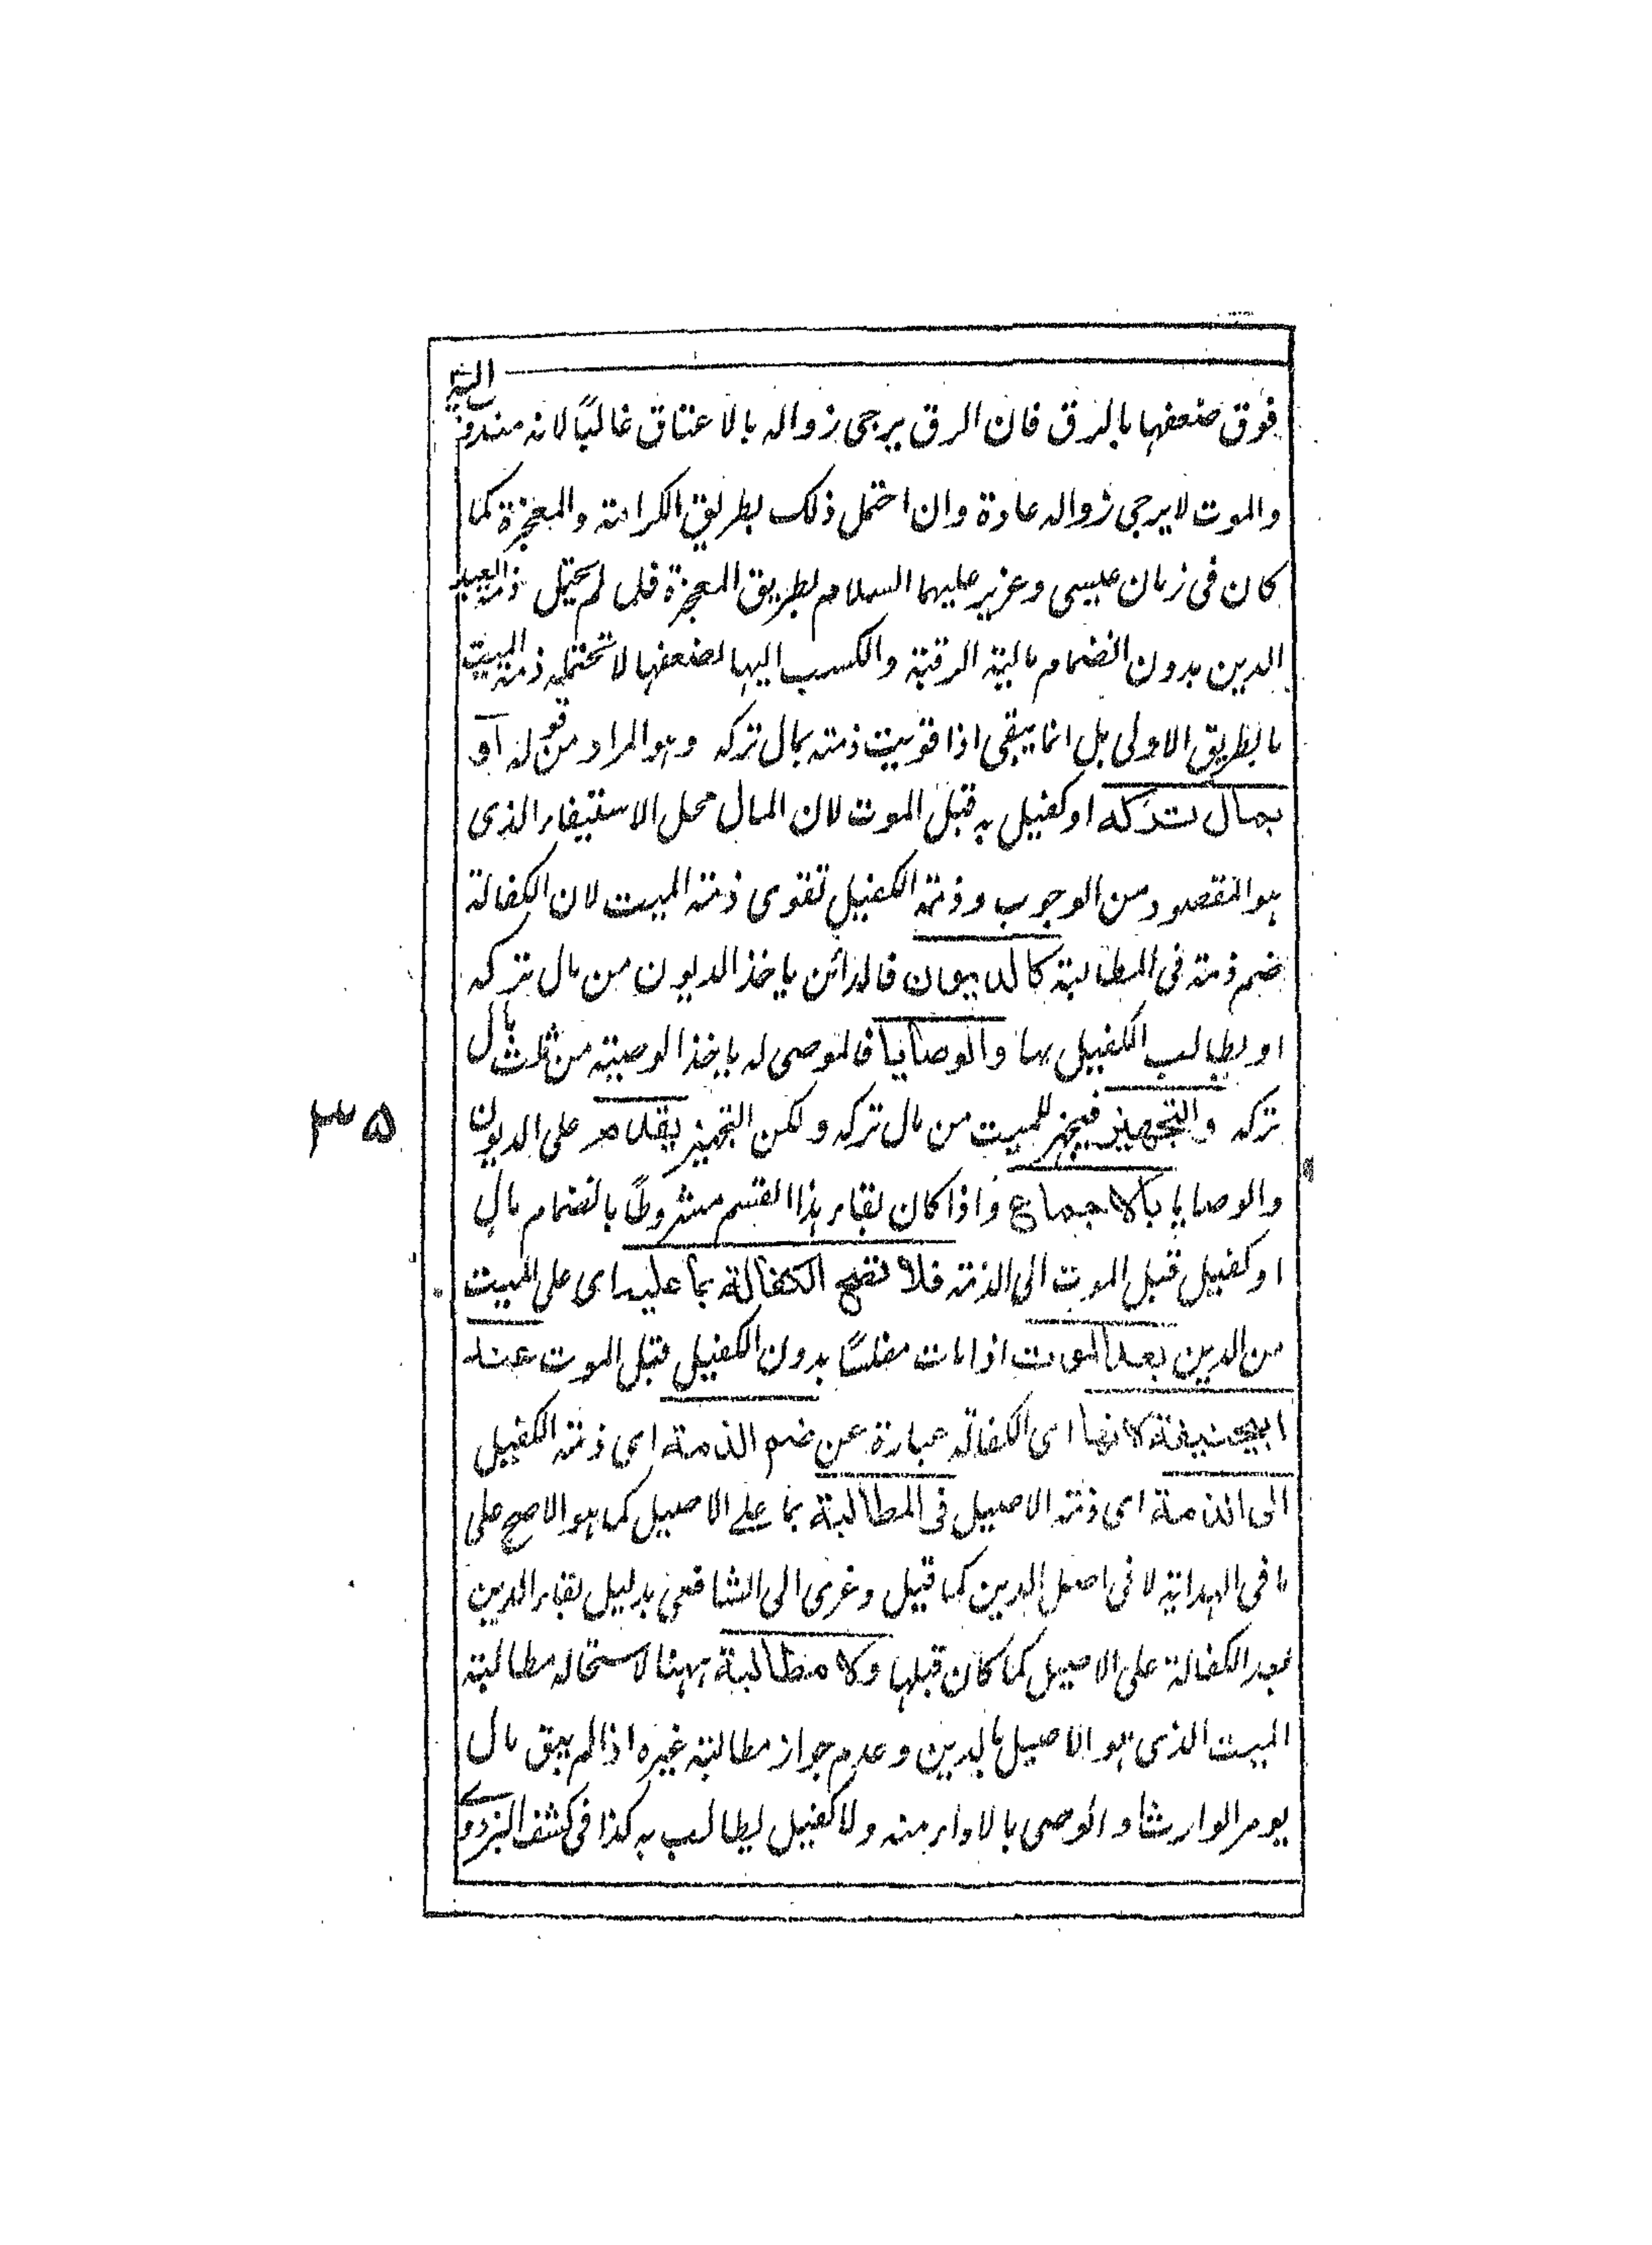 فوق ضعفها بالرق فان الرق يرجى زواله بالاعتاق غالبًا لانه مندوب اليه
والموت لا يرجى زواله عادة وان احتمل ذلك بطريق الكرامة والمعجزة كما
كان فى زمان عيسى وعزير عليهما السلام بطريق المعجزة فلما لم يحتمل ذمة العبد
الدين بدون انضمام مالية الرقبة والكسب اليها لضعفها لا تحتمله ذمة الميت
بالطريق الاولى بل انما يبقى اذا قويت ذمته بمال تركه وهو المراد من قوله او
بمال تركه او كفيل به قبل الموت لان المال محل الاستيفاء الذى
هو المقصود من الوجوب وذمة الكفيل تقوى ذمة الميت لان الكفالة
ضم ذمة فى المطالبة كالديون فالدائن ياخذ الديون من مال تركه
او يطالب الكفيل بها والوصايا فالموصى له ياخذ الوصية من ثلث مال
تركه والتجهيز فيجهز للميت من مال تركه ولكن التجهيز يقدم على الديون
والوصايا بالاجماع واذا كان بقاء هذا القسم مشروطًا بانضمام مال
او كفيل قبل الموت الى الذمة فلا تصح الكفالة بما عليه اى على الميت
من الدين بعد الموت اذا مات مفلسًا بدون الكفيل قبل الموت عند
ابيحنيفة لانها اى الكفالة عبارة عن ضم الذمة اى ذمة الكفيل
الى الذمة اى ذمة الاصيل فى المطالبة بما على الاصيل كما هو الاصح على
ما فى الهداية لا فى اصل الدين كما قيل وعزى الى الشافعى بدليل بقاء الدين
بعد الكفالة على الاصيل كما كان قبلها ولا مطالبة ههنا لاستحالة مطالبة
الميت الذى هو الاصيل بالدين وعدم جواز مطالبة غيره اذا لم يبق مال
يومر الوارث او الوصى بالاداء منه ولا كفيل ليطالب به كذا فى كشف البزدوى
٣٥